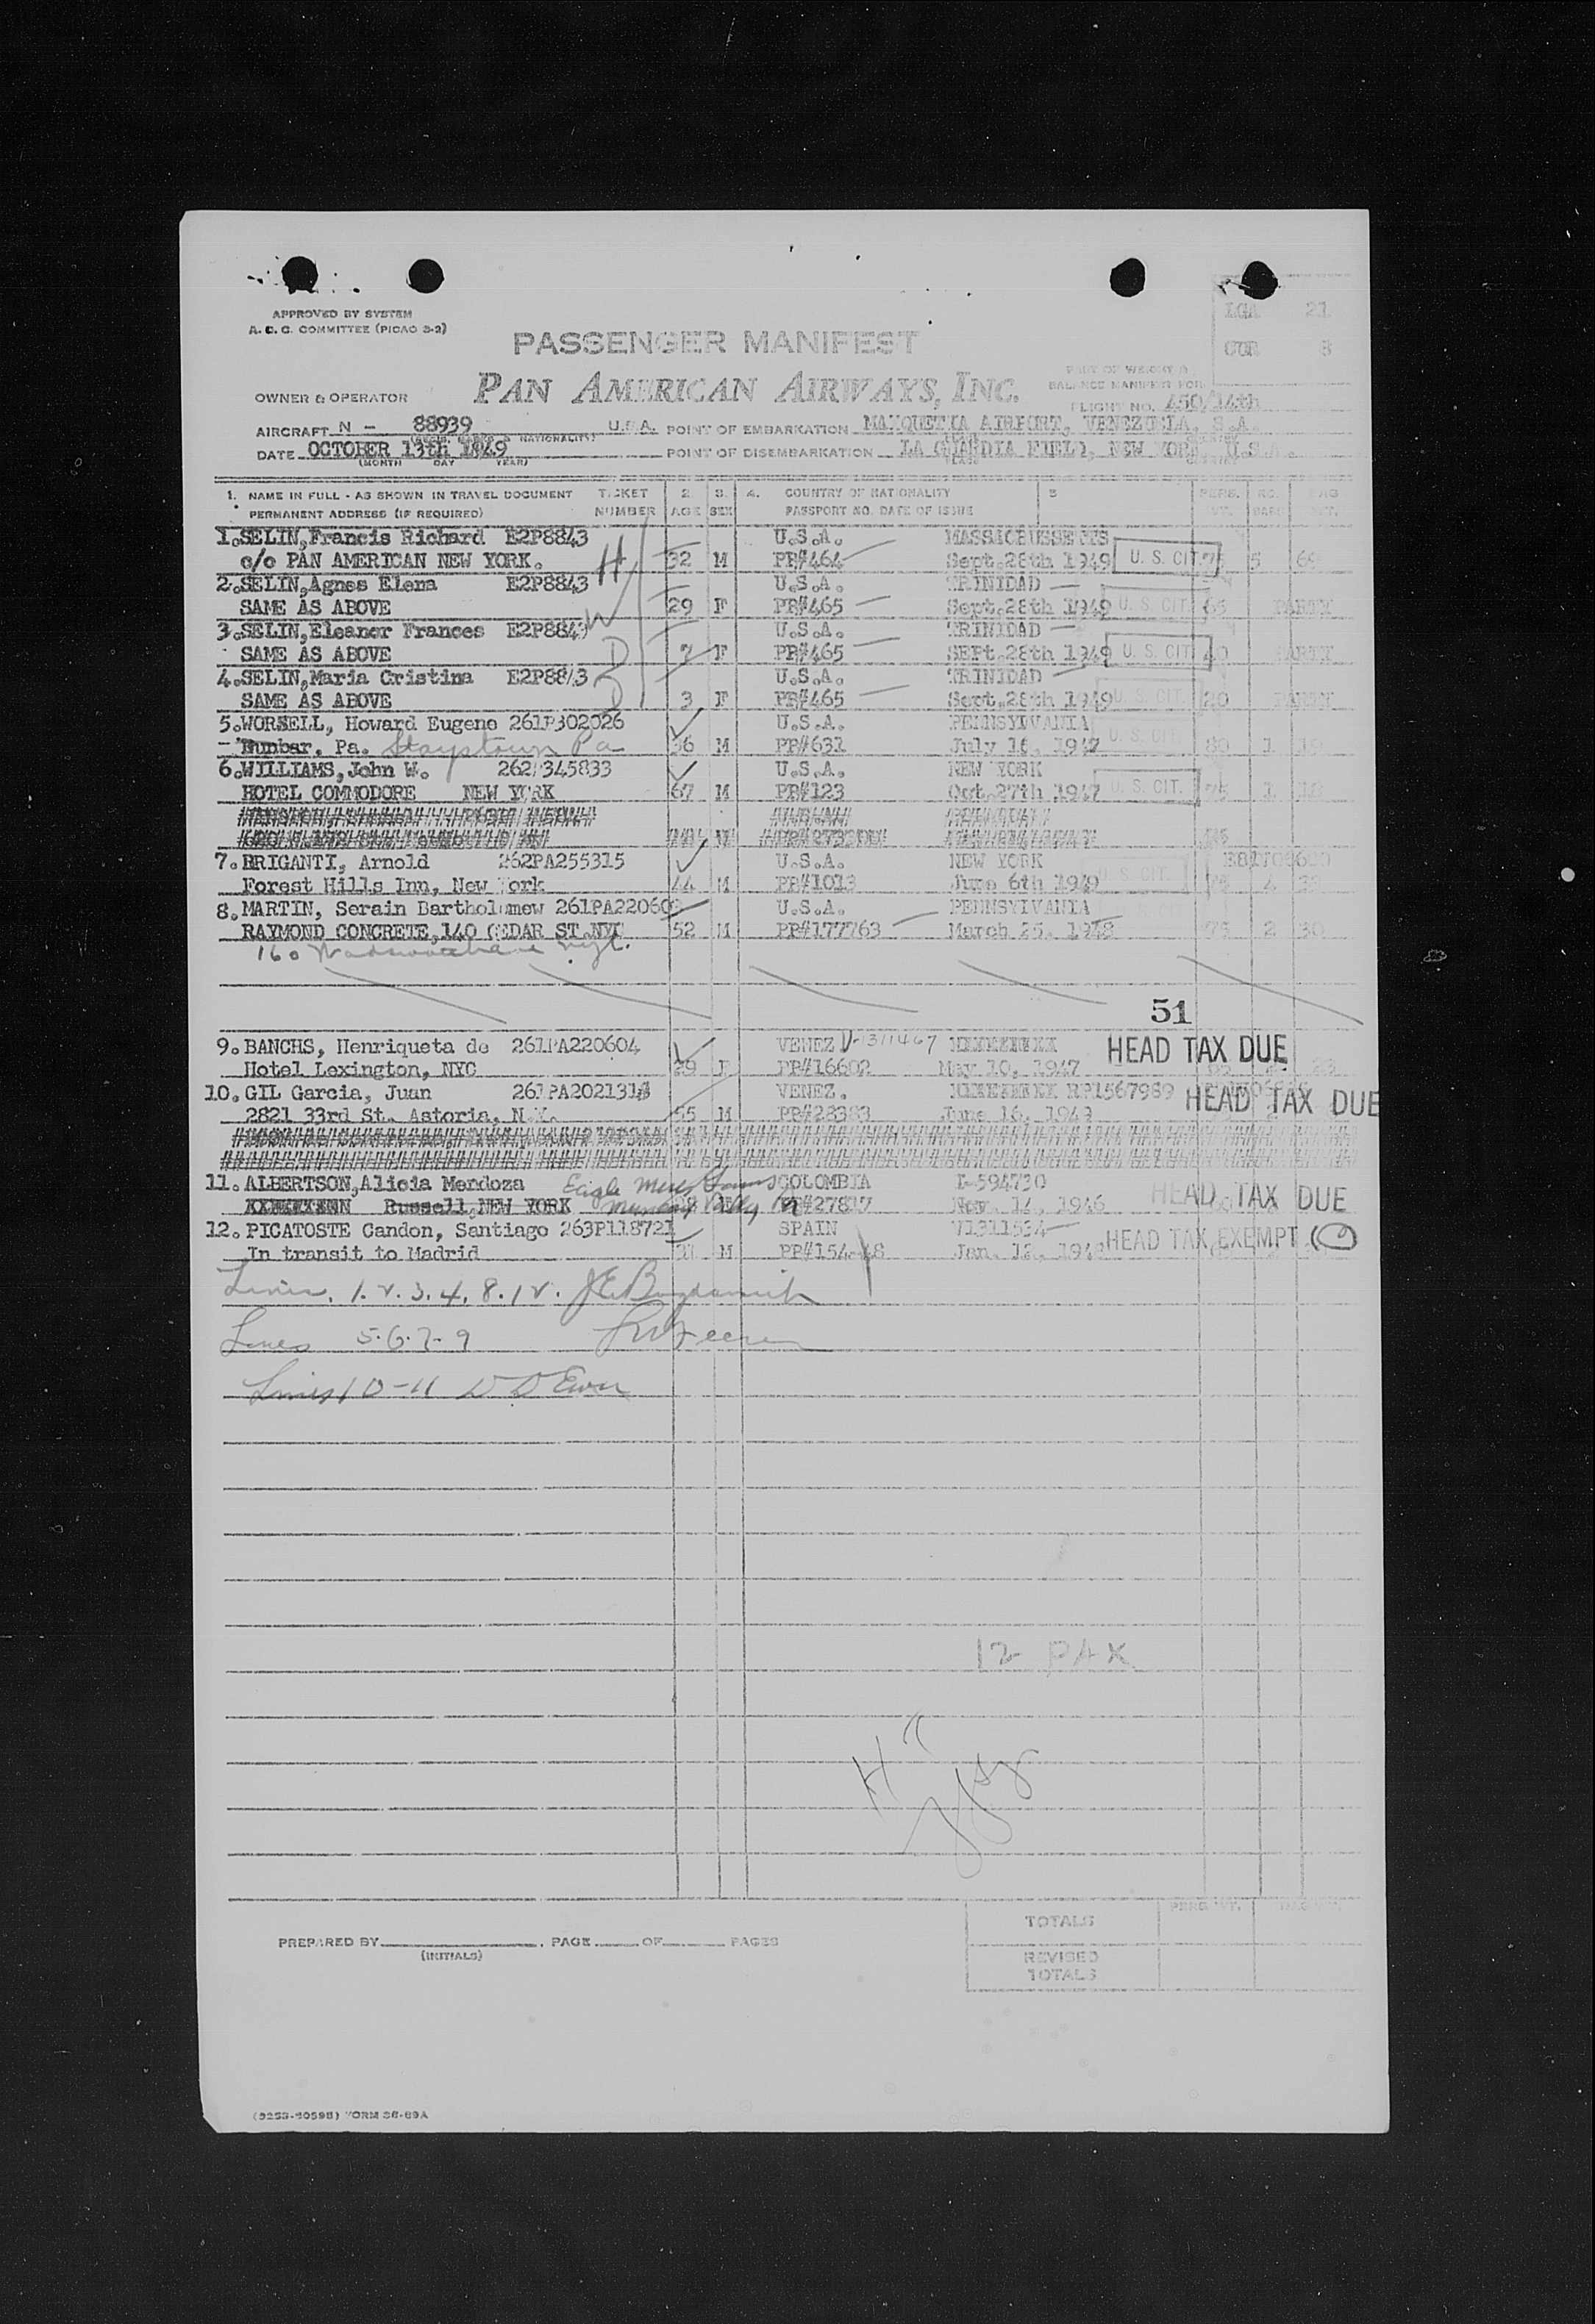 APPROVED BY SYSTEM
A. C. C. COMMITTEE (PICAO 3-2)
LGA 21
CUR 3
PASSENGER MANIFEST
PAN AMERICAN AIRWAYS, INC.
PART OF WEIGHT &
BALANCE MANIFEST FOR
FLIGHT NO. 450/14th
OWNER & OPERATOR
AIRCRAFT N - 88939 U.S.A. POINT OF EMBARKATION MAIQUETIA AIRPORT, VENEZUELA, S.A.
DATE OCTOBER 13th 1949 POINT OF DISEMBARKATION LA GUARDIA FIELD, NEW YORK U.S.A.
(MONTH DAY YEAR)
1. NAME IN FULL - AS SHOWN IN TRAVEL DOCUMENT TICKET 2. 3. 4. COUNTRY OF NATIONALITY 5 PERS. NO. BAG
PERMANENT ADDRESS (IF REQUIRED) NUMBER AGE SEX PASSPORT NO. DATE OF ISSUE WT. BAGS WT.
1. SELIN, Francis Richard E2P8843 U.S.A. MASSACHUSSETTS
c/o PAN AMERICAN NEW YORK. H 32 M PP#464 Sept.28th 1949 U. S. CIT. 75 5
2. SELIN, Agnes Elena E2P8843 U.S.A. TRINIDAD
SAME AS ABOVE W 29 F PP#465 Sept.28th 1949 U. S. CIT. 65 PARTY
3. SELIN, Eleanor Frances E2P8843 U.S.A. TRINIDAD
SAME AS ABOVE D 7 F PP#465 SEPt.28th 1949 U. S. CIT. PARTY
4. SELIN, Maria Cristina E2P8843 U.S.A. TRINIDAD
SAME AS ABOVE D 3 F PP#465 Sept.28th 1949 U. S. CIT. 20 PARTY
5. WORSELL, Howard Eugene 261P302026 U.S.A. PENNSYLVANIA
Dunbar, Pa. Stoystown Pa 36 M PP#631 July 16, 1947 U. S. CIT. 80 1
6. WILLIAMS, John W. 262P345833 U.S.A. NEW YORK
HOTEL COMMODORE NEW YORK 67 M PP#123 Oct.27th 1947 U. S. CIT. 75 1 18
7. BRIGANTI, Arnold 262PA255315 U.S.A. NEW YORK
Forest Hills Inn, New York 44 M PP#1013 June 6th 1949 U. S. CIT. 75
8. MARTIN, Serain Bartholomew 261PA220603 U.S.A. PENNSYLVANIA
RAYMOND CONCRETE, 140 CEDAR ST.NYC 52 M PP#177763 March 25, 1948 75 2 30
160
51
9. BANCHS, Henriqueta de 261PA220604 VENEZ V-1311467 HEAD TAX DUE
Hotel Lexington, NYC 29 F PP#16602 May 10, 1947
10. GIL Garcia, Juan 261PA202131 VENEZ. RP1567989 HEAD TAX DUE
2821 33rd St. Astoria, N.Y. 55 M PP#28383 June 16, 1949
11. ALBERTSON, Alicia Mendoza Eagle Mere COLOMBIA I-594730
Russell, NEW YORK Pa PP#27817 Nov. 14, 1946 HEAD TAX DUE
12. PICATOSTE Candon, Santiago 263P118721 SPAIN V1311534 HEAD TAX EXEMPT
In transit to Madrid M PP#154-48 Jan. 12, 1948
Lines. 1. 2. 3. 4. 8. 12.
Lines 5-6-7-9
Lines 10-11
12 PAX
TOTALS PERS. WT.
PREPARED BY (INITIALS) PAGE OF PAGES
REVISED TOTALS
(9253-40598) FORM 36-89A